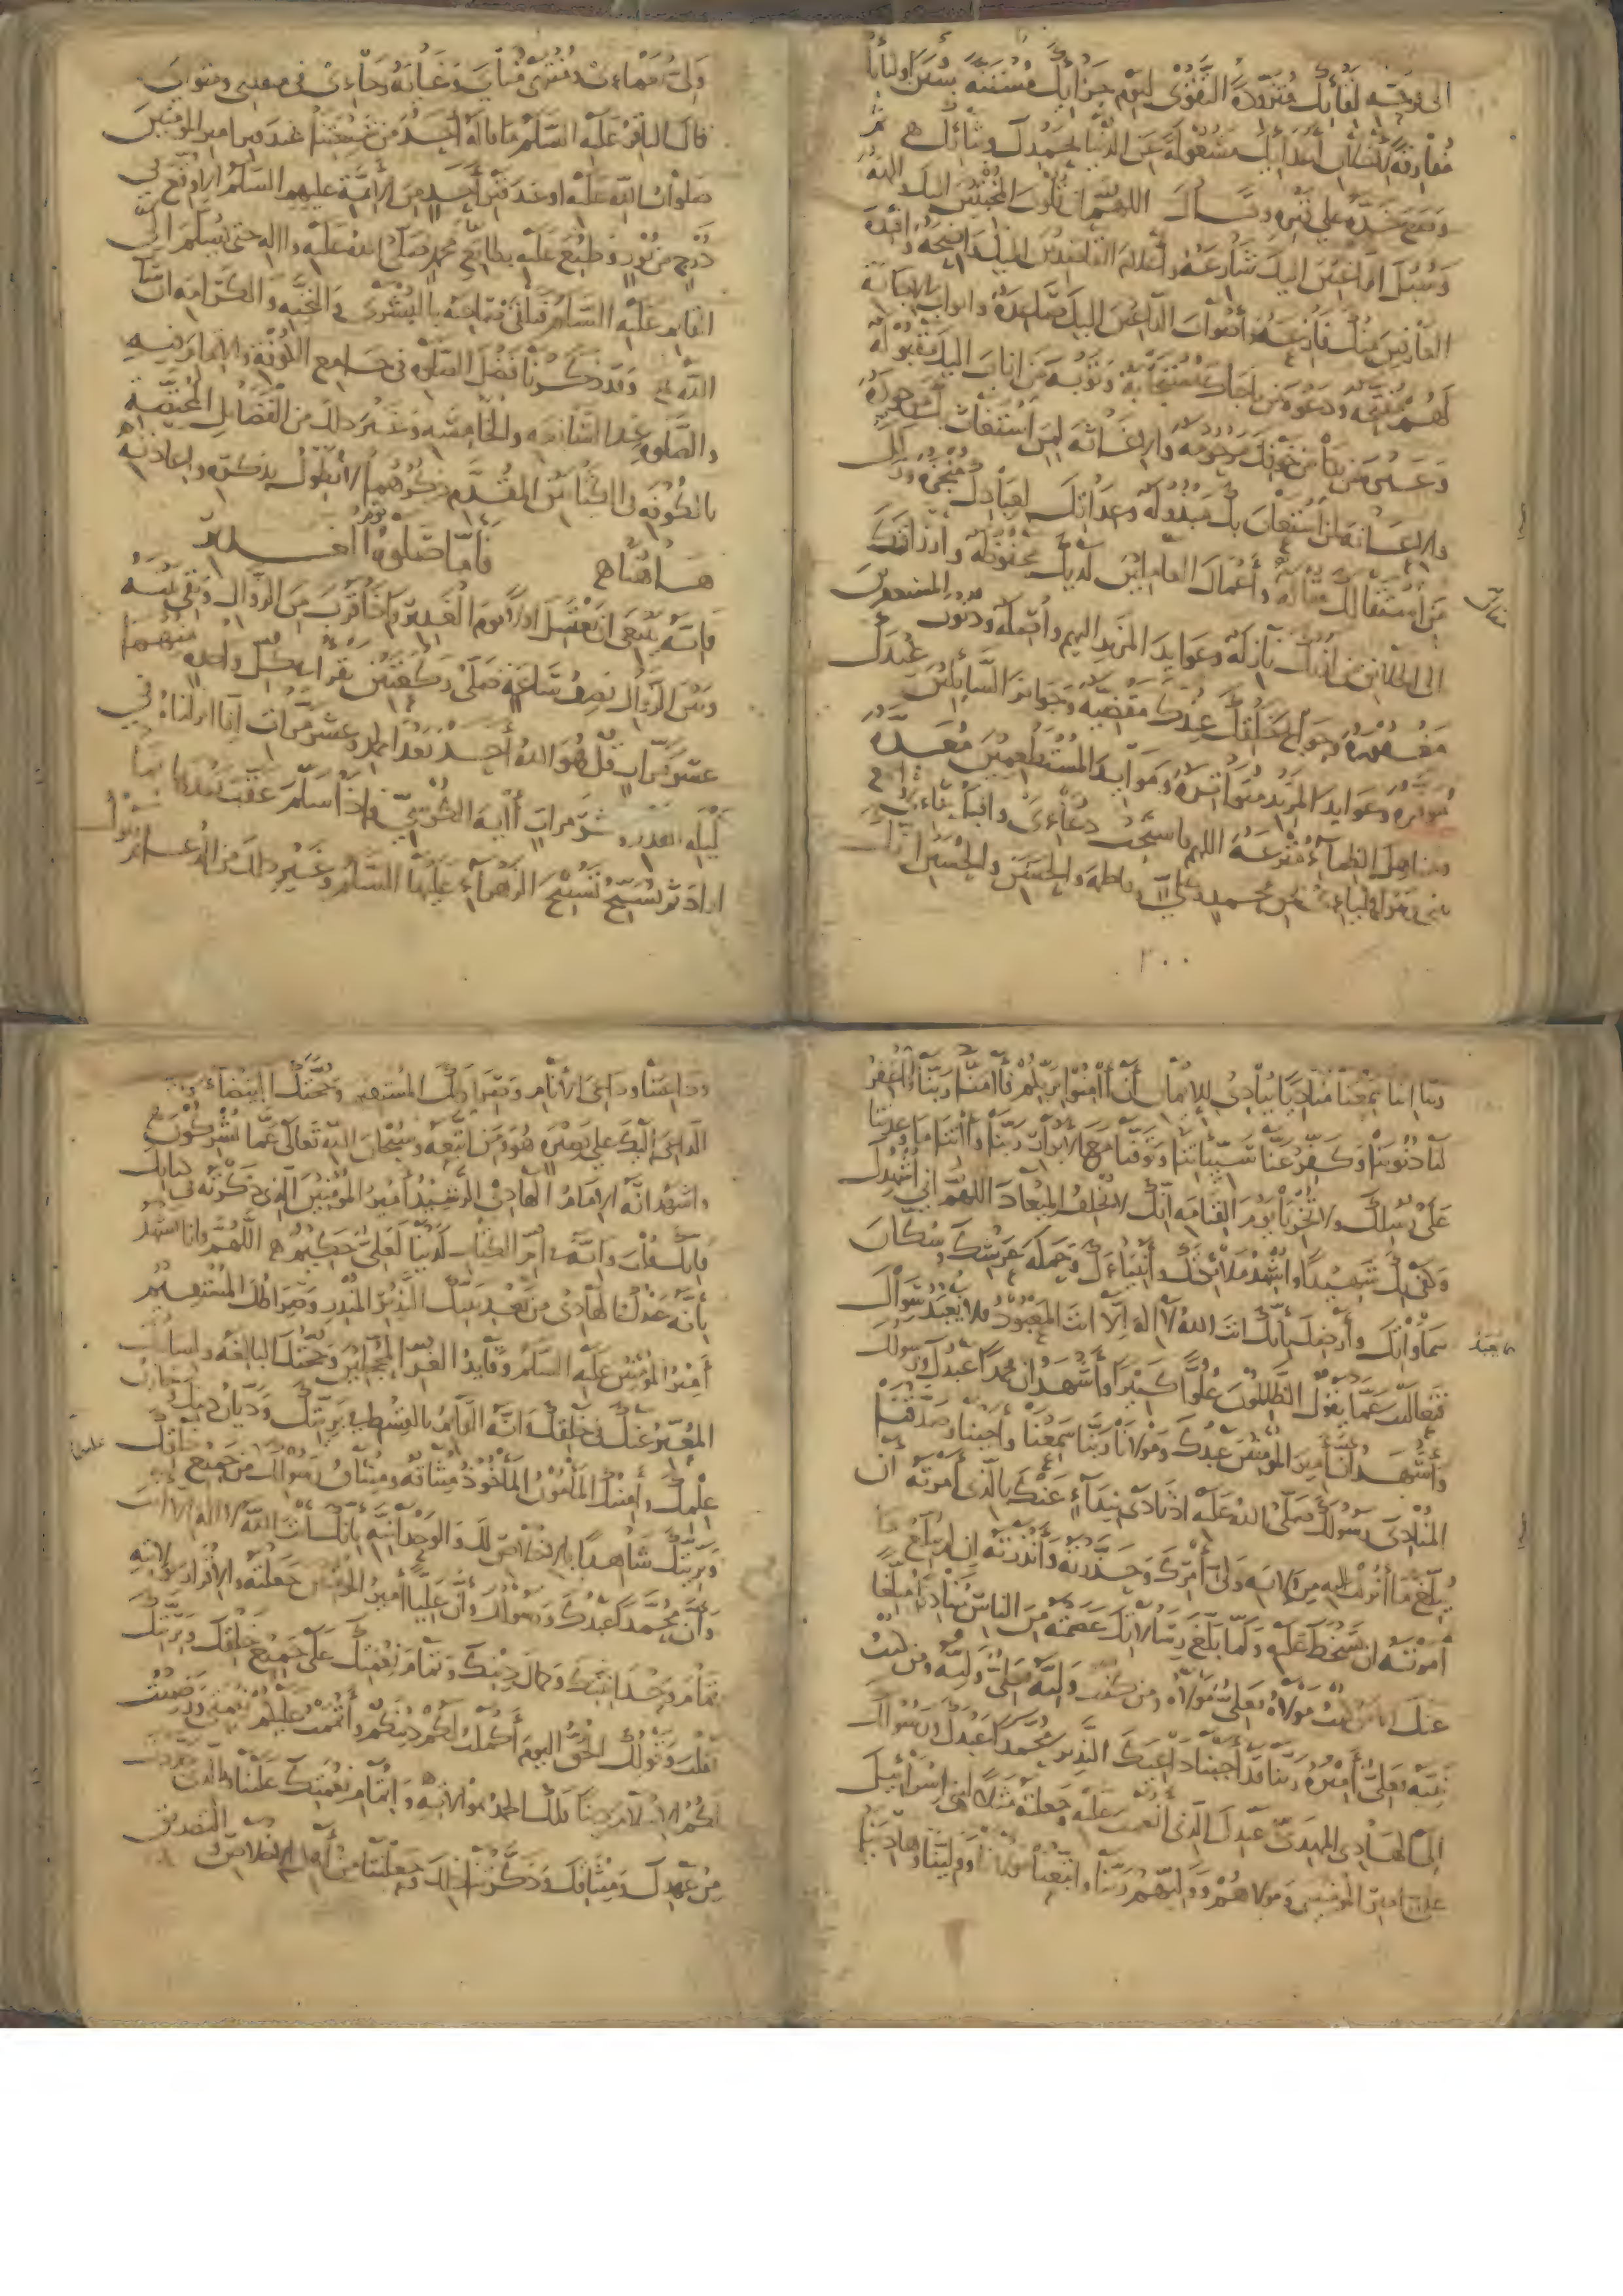 الى فرحة لقائك متزودة التقوى ليوم جزائك مستنة بسنن اوليائك
مفارقة لاخلاق أعدائك مشغولة عن الدنيا بحمدك وثنائك ثم
وضع خده على قبره وقال اللهم ان قلوب المخبتين اليك والهة
وسبل الراغبين اليك شارعة وأعلام القاصدين اليك واضحة وافئدة
العارفين منك فازعة وأصوات الداعين اليك صاعدة وابواب الاجابة
لهم مفتحة ودعوة من ناجاك مستجابة وتوبة من اناب اليك مقبولة
وعبرة من بكا من خوفك مرحومة والاغاثة لمن استغاث بك موجودة
والاعانة لمن استعان بك مبذولة وعداتك لعبادك منجزة وزلل
من استقالك مقالة وأعمال العاملين لديك محفوظة وارزاقك
الى الخلائق من لدنك نازلة وعوايد المزيد اليهم واصلة وذنوب المستغفرين
مغفورة وحوايج خلقك عندك مقضية وجوايز السايلين عندك
موفرة وعوايد المزيد متواترة وموايد المستطعمين معدة
ومناهل الظماء مترعة اللهم فاستجب دعاءى واقبل ثناءى
بينى وبين اولياءى بحق محمد وعلي وفاطمة والحسن والحسين انك
٢٠٠
ولي نعماءى ومنتهى مناي وغاية رجاءى في منقلبى ومثواى
قال الباقر عليه السلام ما قاله أحد من شيعتنا عند قبر امير المومنين
صلوات الله عليه او عند قبر أحد من الأئمة عليهم السلام الا وقع في
درج من نور وطبع عليه بطابع محمد صلى الله عليه واله حتى يسلم الى
القايم عليه السلام فيلقى صاحبه بالبشرى والتحية والكرامة ان شا
الله وقد ذكرنا فضل الصلوة في جامع الكوفة والاتمام فيه
والصلوة عند السابعة والخامسة وغير ذلك من الفضائل المختصة
بالكوفة في الكتابين المقدم ذكرهما لا نطول بذكره واعادته
هاهنا فاما صلوة يوم الغدير
فانه ينبغى ان يغتسل اولا يوم الغدير فاذا قرب من الزوال وبقي بينه
وبين الزوال نصف ساعة صلى ركعتين يقرا في كل واحدة منهما
عشر مرات قل هو الله أحد بعد الحمد وعشر مرات انا انزلناه في
ليلة القدر وعشر مرات أاية الكرسي فاذا سلم عقب بعدها بما
اراد ثم تسبح تسبيح الزهراء عليها السلام وغير ذلك من الدعاء ثم تقول
ربنا اننا سمعنا مناديا ينادى للايمان أن أامنوا بربكم فأامنا ربنا فاغفر
لنا ذنوبنا وكفر عنا سيئاتنا وتوفنا مع الابرار ربنا وأاتنا ما وعدتنا
على رسلك ولا تخزنا يوم القيامة انك لا تخلف الميعاد اللهم اني أشهدك
وكفى بك شهيدا واشهد ملائكتك وأنبياءك وحملة عرشك وسكان
سماواتك وأرضك بأنك انت الله لا اله الا انت المعبود فلا يعبد سواك
فتعاليت عما يقول الظالمون علوا كبيرا وأشهد ان محمدا عبدك ورسولك
وأشهد أن أمير المؤمنين عبدك ومولانا ربنا سمعنا وأجبنا وصدقنا
المنادى رسولك صلى الله عليه اذ نادى بنداء عنك بالذى أمرته أن
يبلغ ما أنزلت اليه من ولاية ولى أمرك وحذرته وأنذرته ان لم يبلغ ما
أمرته ان تسخط عليه ولما بلغ رسالاتك عصمته من الناس فنادى مبلغا
عنك الا من كنت مولاه فعلى مولاه ومن كنت وليه فعلى وليه ومن كنت
نبيه فعلى أميره ربنا قد أجبنا داعيك النذير محمدا عبدك ورسولك
الى الهادى المهدى عبدك الذى أنعمت عليه وجعلته مثلا لبنى اسرائيل
على امير المؤمنين ومولاهم ووليهم ربنا واتبعنا مولانا وولينا وهادينا
وداعينا وداعى الانام وصراطك المستقيم وحجتك البيضاء
الداعى اليك على بصيرة هو ومن اتبعه وسبحان الله تعالى عما يشركون
واشهد انه الامام الهادى الرشيد أمير المؤمنين الذى ذكرته في كتابك
فانك قلت وانه في ام الكتاب لدينا لعلي حكيم اللهم وانا نشهد
بأنه عبدك الهادى من بعد نبيك النذير المنذر وصراطك المستقيم
أمير المؤمنين عليه السلام وقايد الغر المحجلين وحجتك البالغة ولسانك
المعبر عنك فى خلقك انه القائم بالقسط فى بريتك وديان دينك
علمك وأمينك المأمون المأخوذ ميثاقه وميثاق رسولك من جميع خلقك
وبريتك شاهدا بالاخلاص لك والوحدانية بانك انت الله لا اله الا انت
وأن محمدا عبدك ورسولك وأن عليا أمير المؤمنين جعلته والاقرار بولايته
تمام وحدانيتك وكمال دينك وتمام نعمتك على جميع خلقك وبريتك
فقلت وقولك الحق اليوم أكملت لكم دينكم وأتممت عليكم نعمتى ورضيت
لكم الاسلام دينا فلك الحمد بموالاته واتمام نعمتك علينا بالذى جددت
من عهدك وميثاقك وذكرتنا ذلك وجعلتنا من أهل الاخلاص والتصديق